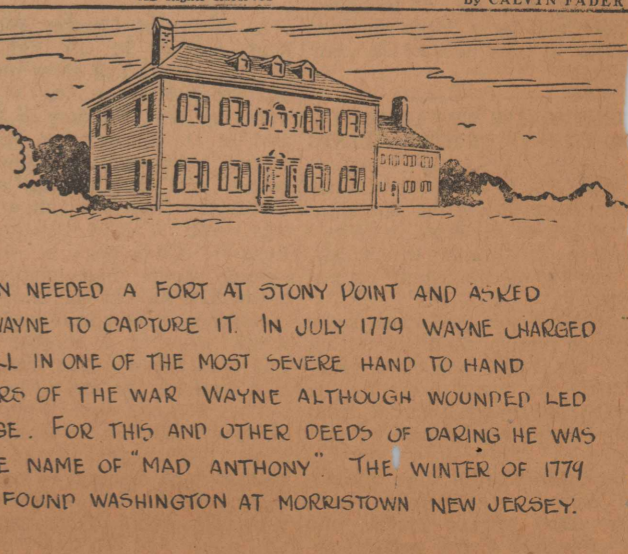 by CALVIN FADER
N NEEDED A FORT AT STONY POINT AND ASKED
WAYNE TO CAPTURE IT. IN JULY 1779 WAYNE CHARGED
LL IN ONE OF THE MOST SEVERE HAND TO HAND
RS OF THE WAR WAYNE ALTHOUGH WOUNDED LED
GE. FOR THIS AND OTHER DEEDS OF DARING HE WAS
E NAME OF "MAD ANTHONY". THE WINTER OF 1779
FOUND WASHINGTON AT MORRISTOWN NEW JERSEY.